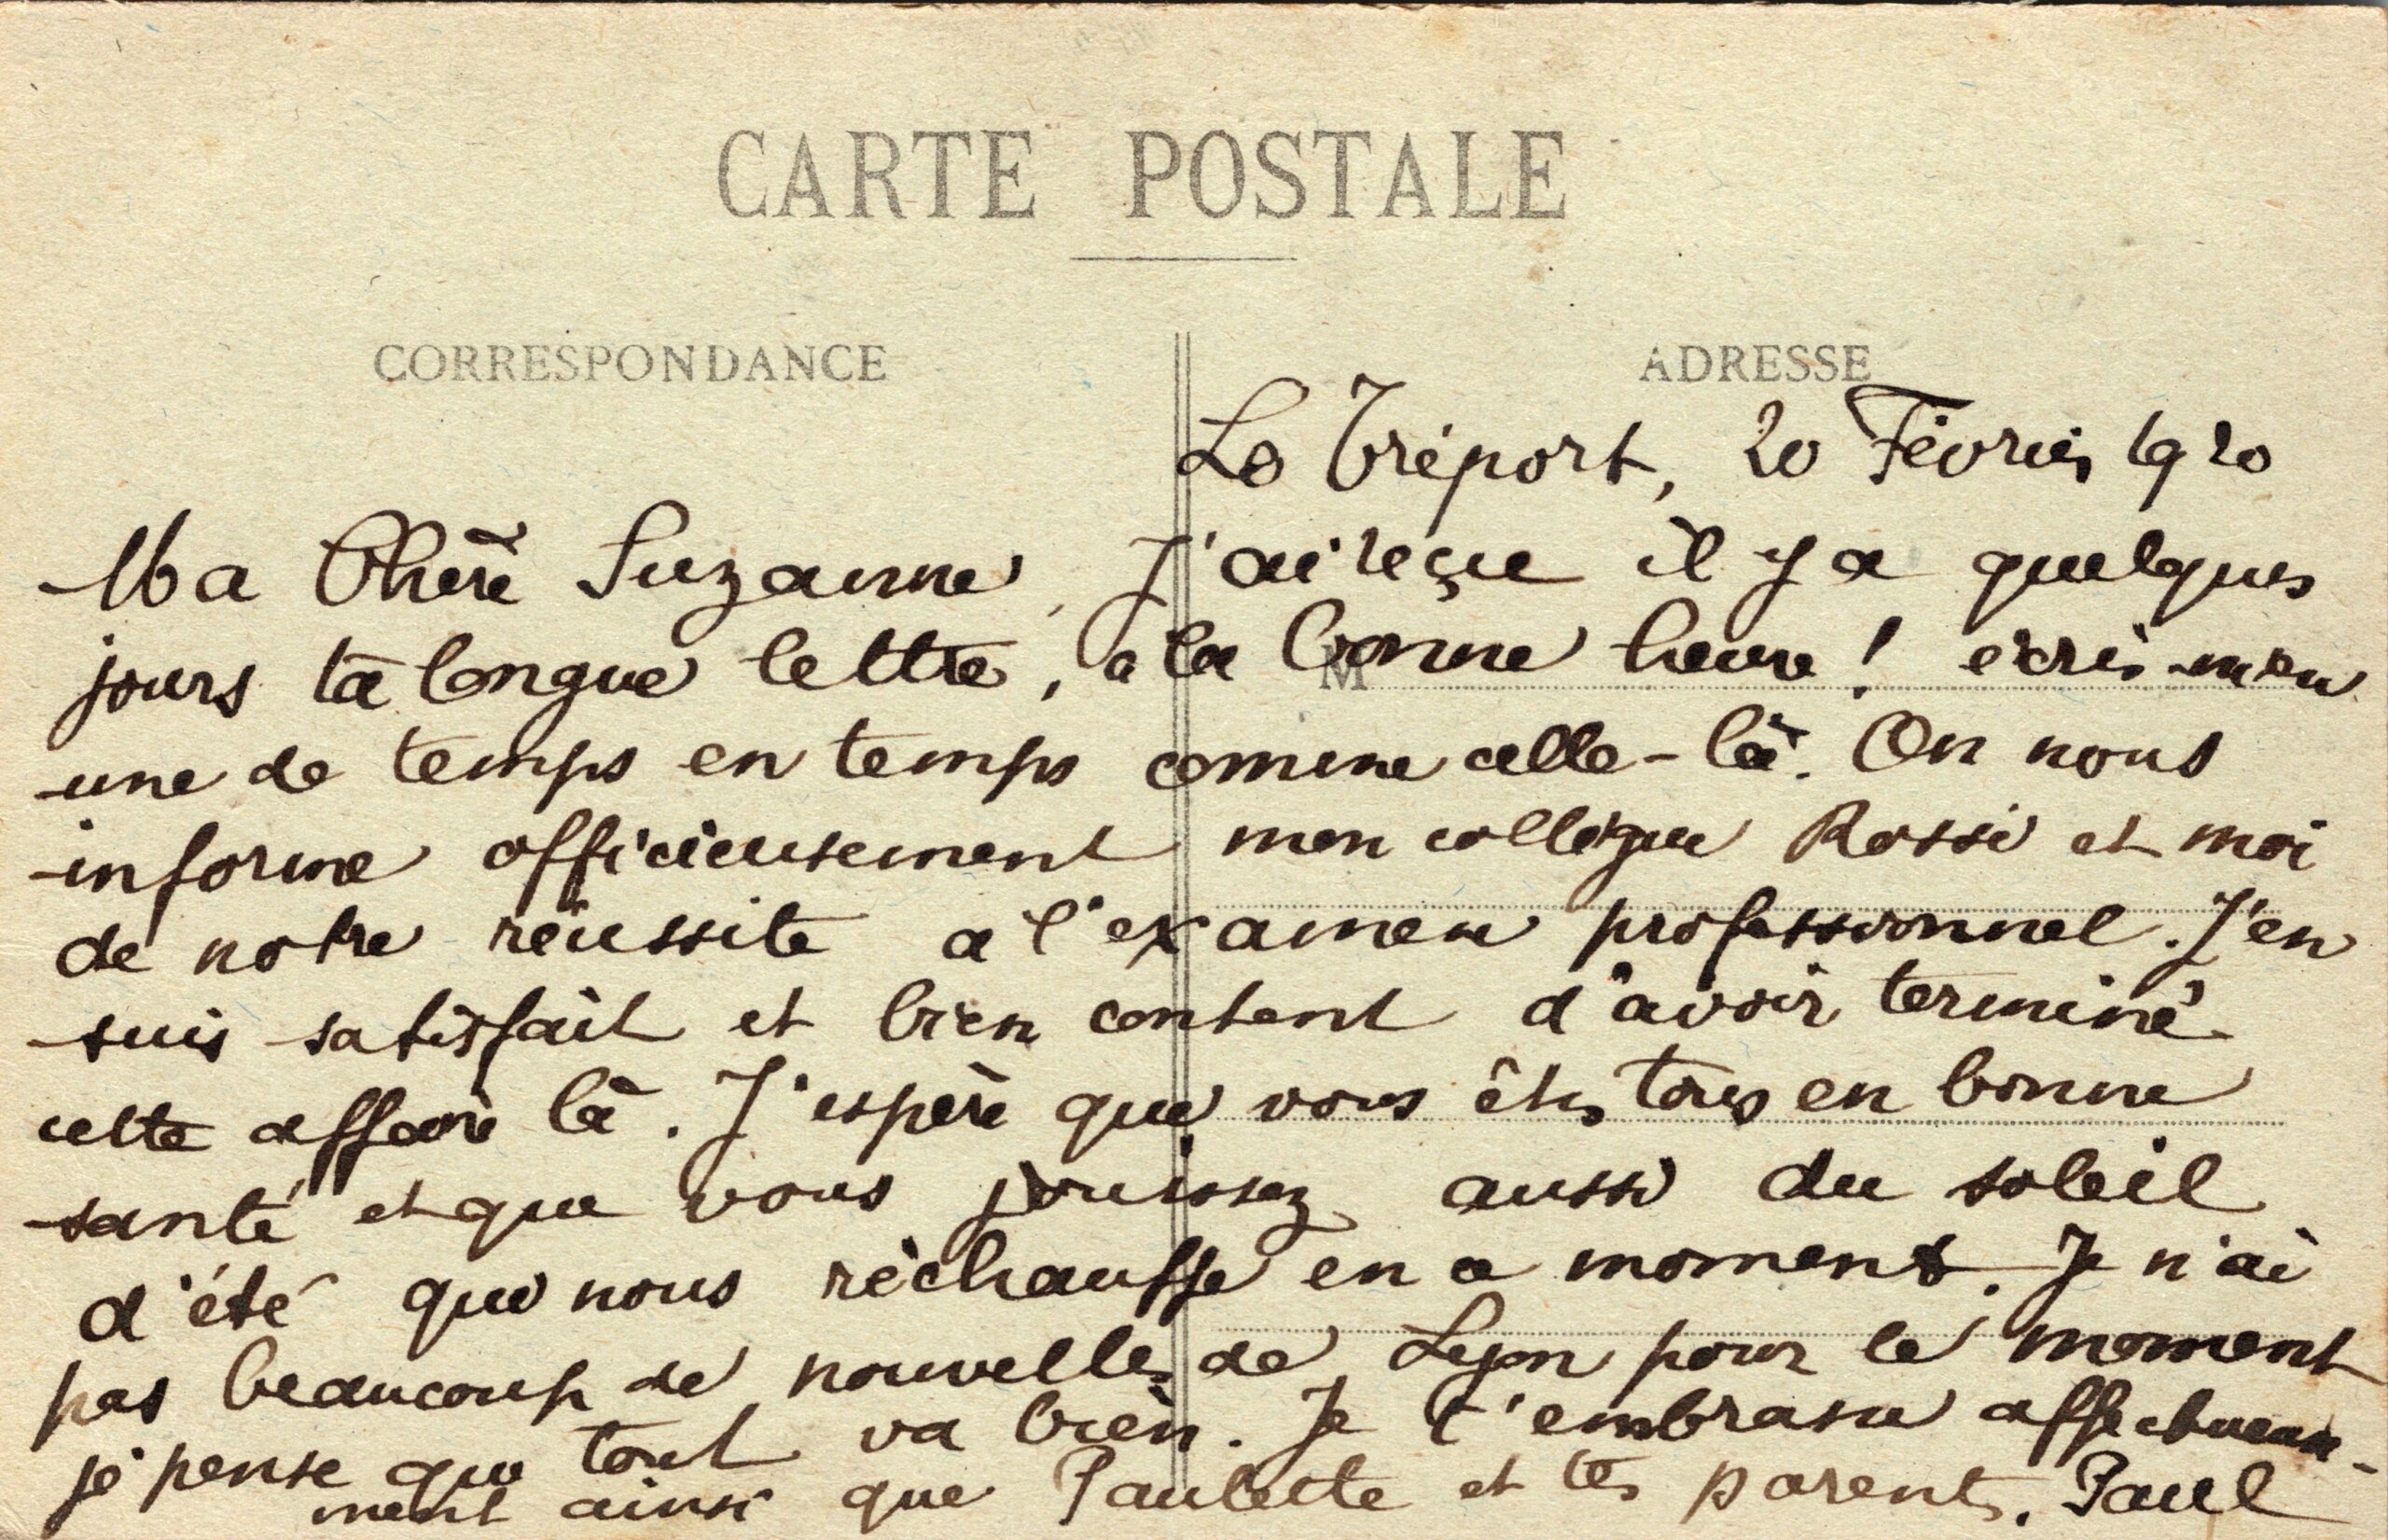 CARTE POSTALE
CORRESPONDANCE
ADRESSE
Le Tréport, 20 Février 1920
Ma Chère Suzanne, J'ai reçue il y a quelques
jours ta longue lettre, à la bonne heure ! écris-m'en
M
une de temps en temps comme celle-là. On nous
informe officieusement mon collègue Rossi et moi
de notre réussite a l'examen professionnel. J'en
suis satisfait et bien content d'avoir terminé
cette affaire là. J'espère que vous êtes tous en bonne
santé et que vous jouissez aussi du soleil
d'été que nous réchauffe en ce moment. Je n'ai
pas beaucoup de nouvelles de Lyon pour le moment
je pense que tout va bien. Je t'embrasse affectueuse-
ment ainsi que Paulette et tes parents. Paul